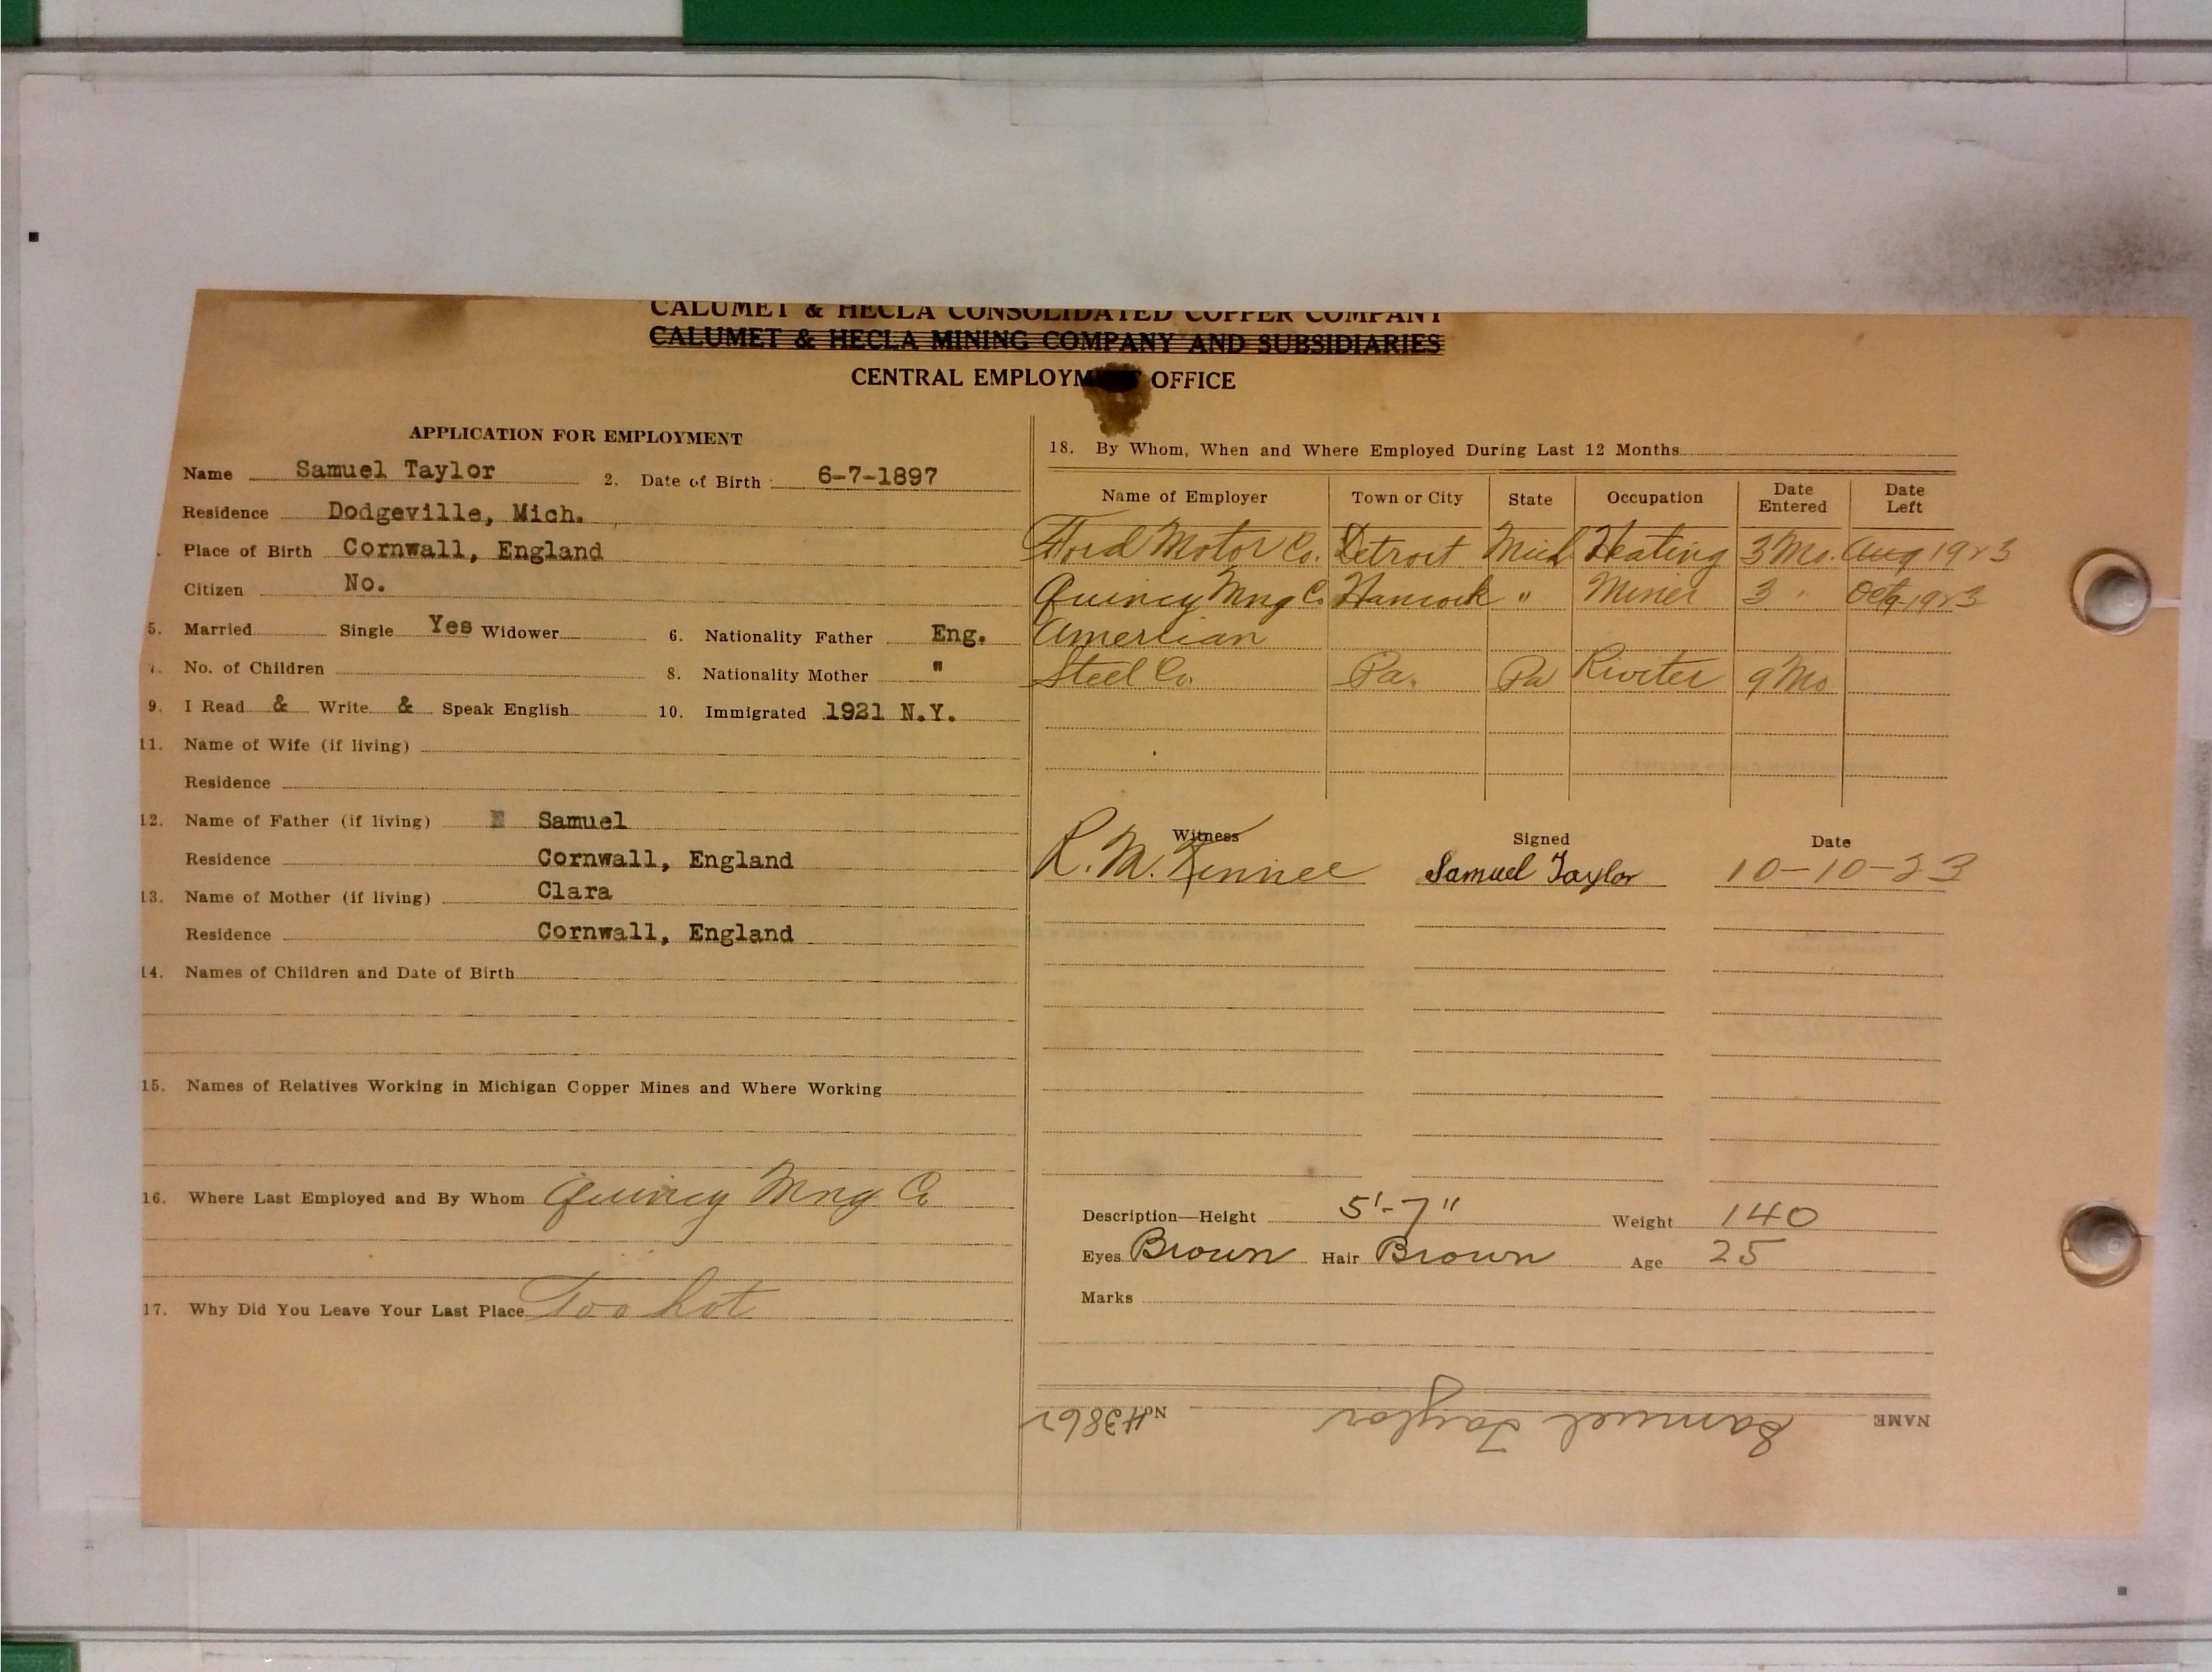 CALUMET & HECLA CONSOLIDATED COPPER COMPANY
CALUMET & HECLA MINING COMPANY AND SUBSIDIARIES
CENTRAL EMPLOYM OFFICE
APPLICATION FOR EMPLOYMENT
Name Samuel Taylor 2. Date of Birth 6-7-1897
Residence Dodgeville, Mich.
Place of Birth Cornwall, England
Citizen No.
5. Married Single Yes Widower 6. Nationality Father Eng.
7. No. of Children 8. Nationality Mother "
9. I Read & Write & Speak English 10. Immigrated 1921 N.Y.
11. Name of Wife (if living)
Residence
12. Name of Father (if living) Samuel
Residence Cornwall, England
13. Name of Mother (if living) Clara
Residence Cornwall, England
14. Names of Children and Date of Birth
15. Names of Relatives Working in Michigan Copper Mines and Where Working
16. Where Last Employed and By Whom Quincy Mng Co
17. Why Did You Leave Your Last Place Too hot
18. By Whom, When and Where Employed During Last 12 Months
Name of Employer Town or City State Occupation Date Entered Date Left
Ford Motor Co. Detroit Mich Heating 3 Mo. Aug 1923
Quincy Mng Co Hancock " Miner 3 " Oct 9-1923
Amercian
Steel Co. Pa. Pa Riviter 9 Mo
Witness Signed Date
R. M. Kinnee Samuel Taylor 10-10-23
Description—Height 5'-7" Weight 140
Eyes Brown Hair Brown Age 25
Marks
NAME Samuel Taylor No. 43862